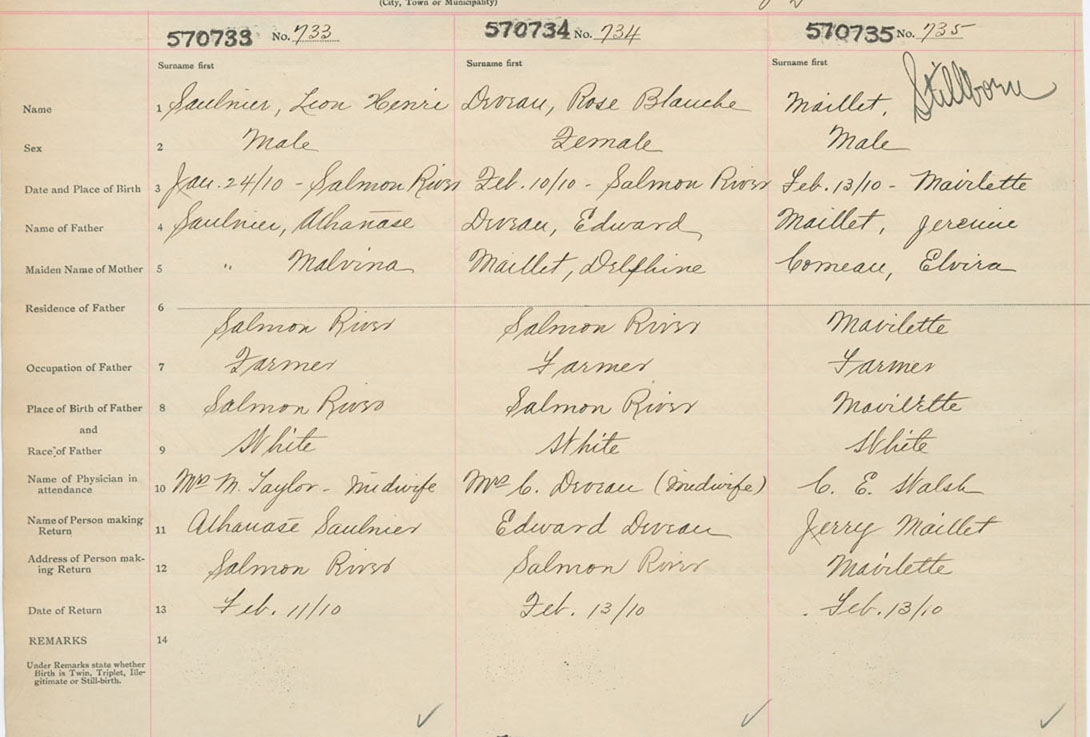 (City, Town or Municipality)
570733 No. 733 570734 No. 734 570735 No. 735
Surname first Surname first Surname first
Stillborn
Name 1 Saulnier, Leon Henri Deveau, Rose Blanche Maillet,
Sex 2 Male Female Male
Date and Place of Birth 3 Jan. 24/10 - Salmon River Feb. 10/10 - Salmon River Feb. 13/10 - Mavilette
Name of Father 4 Saulnier, Athanase Deveau, Edward Maillet, Jeremie
Maiden Name of Mother 5 " Malvina Maillet, Delphine Comeau, Elvira
Residence of Father 6 Salmon River Salmon River Mavilette
Occupation of Father 7 Farmer Farmer Farmer
Place of Birth of Father 8 Salmon River Salmon River Mavilette
and
Race of Father 9 White White White
Name of Physician in attendance 10 Mrs M. Taylor - Midwife Mrs C. Deveau (Midwife) C. E. Walsh
Name of Person making Return 11 Athanase Saulnier Edward Deveau Jerry Maillet
Address of Person mak-ing Return 12 Salmon River Salmon River Mavilette
Date of Return 13 Feb. 11/10 Feb. 13/10 Feb. 13/10
REMARKS 14
Under Remarks state whether
Birth is Twin, Triplet, Ille-
gitimate or Still-birth.